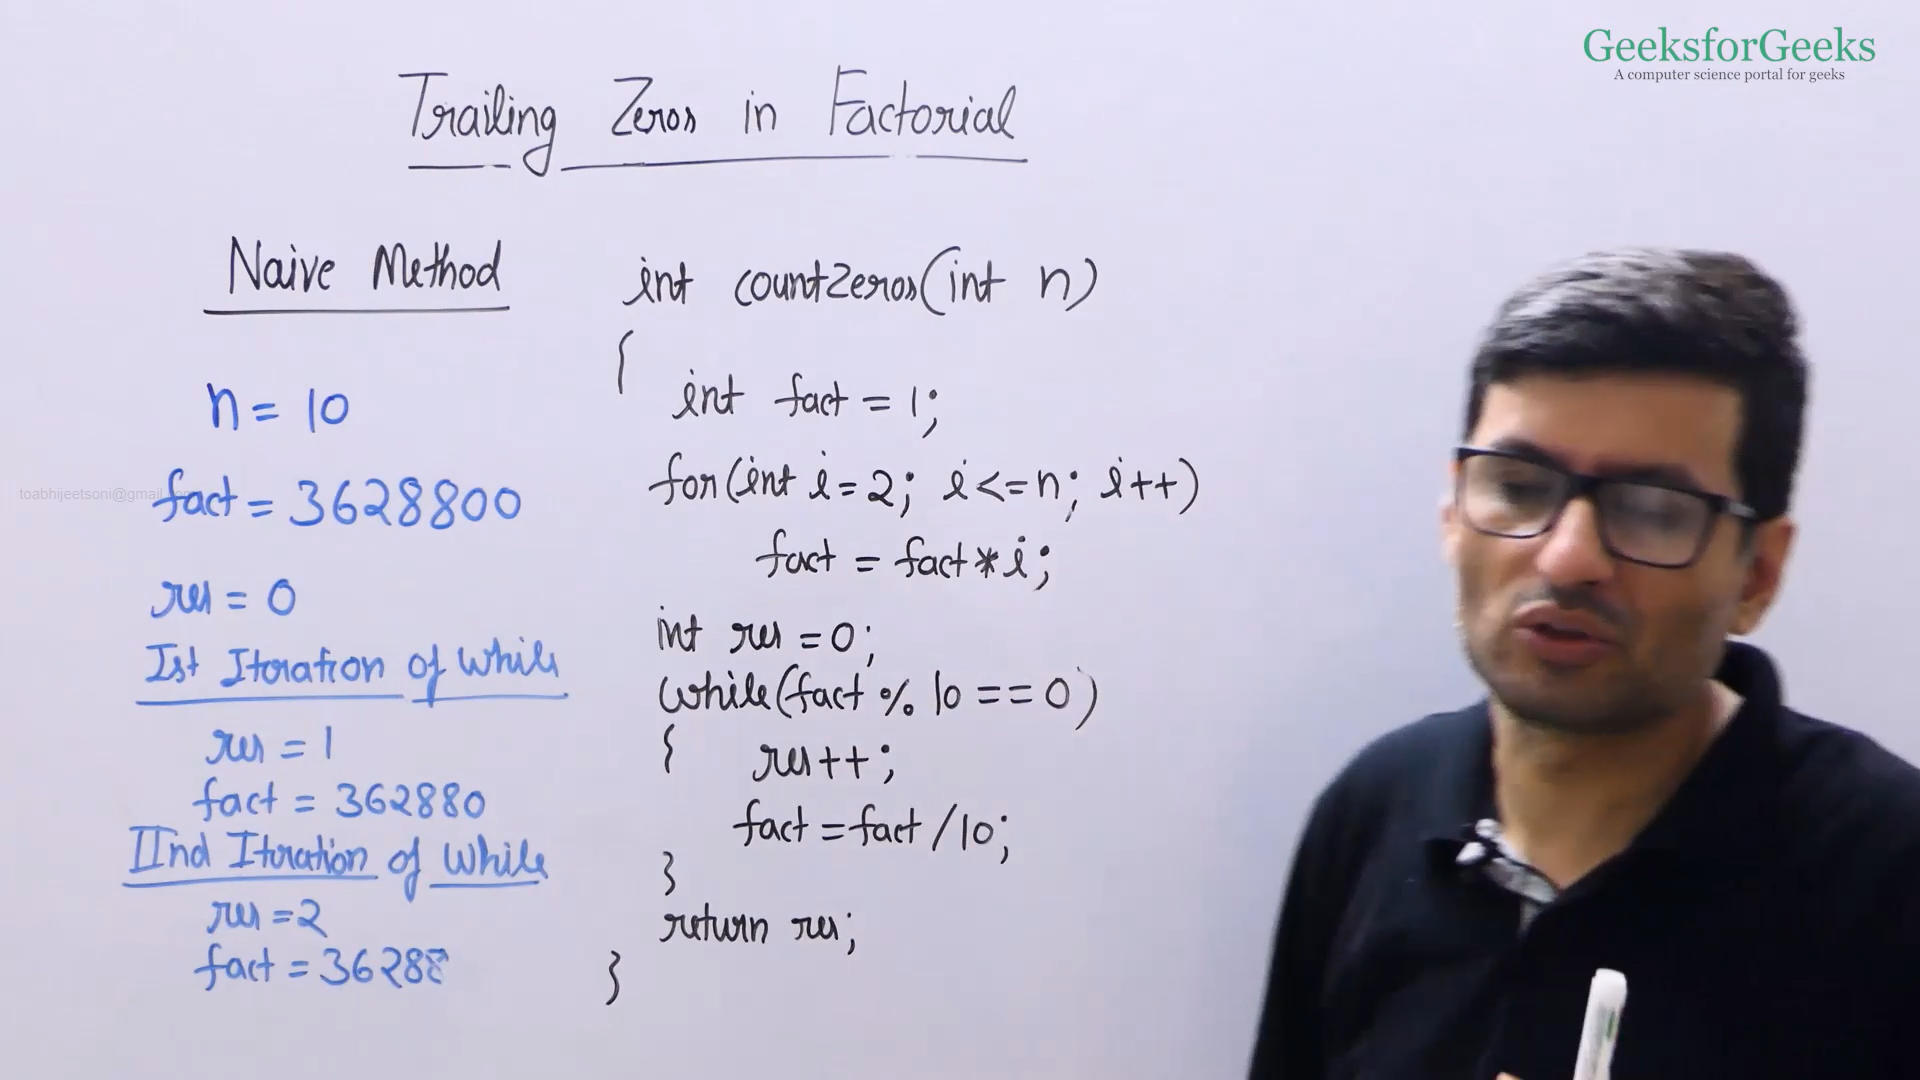 GeeksforGeeks
A computer science portal for geeks
Trailing Zeros in Factorial
Naive Method
n = 10
fact = 3628800
res = 0
Ist Iteration of While
res = 1
fact = 362880
IInd Iteration of While
res = 2
fact = 36288
int countZeros(int n)
{
int fact = 1;
for(int i = 2; i <= n; i++)
fact = fact * i;
int res = 0;
while(fact % 10 == 0)
{
res++;
fact = fact / 10;
}
return res;
}